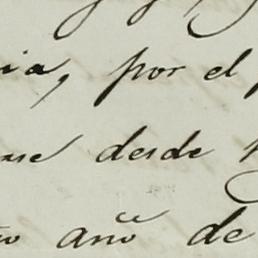 ia, por el
ue desde
año de